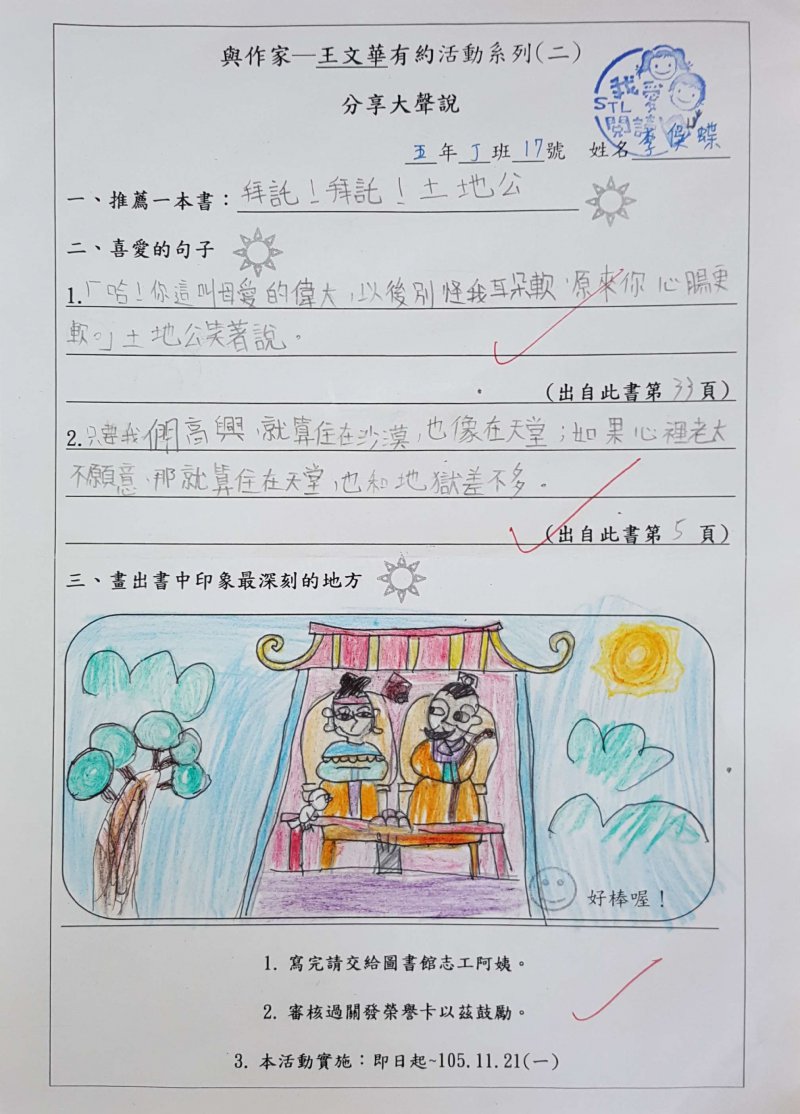 與作家—王文華有約活動系列(二)
我愛
STL
閱讀
分享大聲說
五年丁班17號 姓名李倢蝶
一、推薦一本書：拜託！拜託！土地公
二、喜愛的句子
1.「哈！你這叫母愛的偉大，以後別怪我耳朵軟，原來你心腸更
軟。」土地公笑著說。
(出自此書第33頁)
2.只要我們高興，就算住在沙漠，也像在天堂；如果心裡老大
不願意，那就算住在天堂，也和地獄差不多。
(出自此書第5頁)
三、畫出書中印象最深刻的地方
好棒喔！
1. 寫完請交給圖書館志工阿姨。
2. 審核過關發榮譽卡以茲鼓勵。
3. 本活動實施：即日起~105.11.21(一)